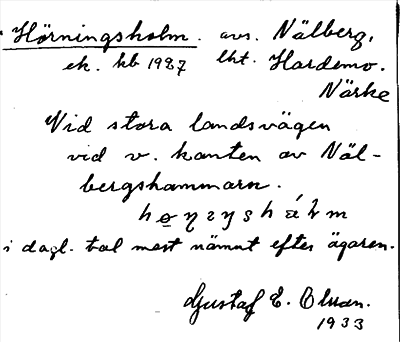 Hörningsholm. avs. Nälberg,
ek. kb 1987 lht. Hardemo.
Närke
Vid stora landsvägen
vid v. kanten av Näl-
bergshammarn.
i dagl. tal mest nämnt efter ägaren.
Gustaf E. Olsson.
1933